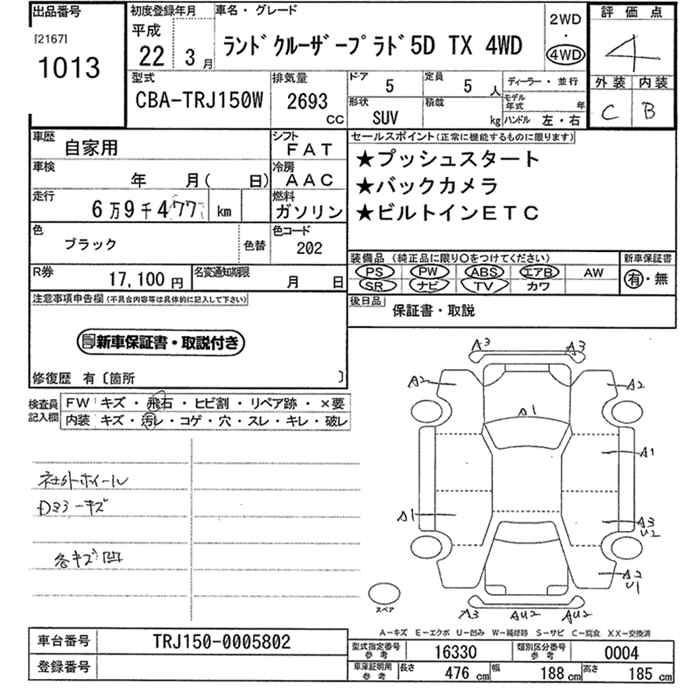 出品番号
[2167]
1013
初度登録年月
平成
22 3月
車名・グレード
ランドクルーザープラド5D TX 4WD
2WD
・
4WD
評価点
4
外装 内装
C B
型式
CBA-TRJ150W
排気量
2693
cc
ドア 5
定員 5 人
形状 SUV
積載 kg
ディーラー・並行
モデル年式 年
ハンドル 左・右
車歴 自家用
シフト FAT
車検 年 月( 日)
冷房 AAC
走行 6万9千477 km
燃料 ガソリン
色 ブラック
色替
色コード 202
R券 17,100円
名変通知期限 月 日
セールスポイント(正常に機能するものに限ります)
★プッシュスタート
★バックカメラ
★ビルトインETC
装備品(純正品に限り○をつけてください)
新車保証書
PS PW ABS エアB AW
SR ナビ TV カワ
有・無
後日品
保証書・取説
注意事項申告欄(不具合内容等は具体的に記入して下さい)
新車保証書・取説付き
修復歴 有〔箇所 〕
検査員記入欄
FW キズ・飛石・ヒビ割・リペア跡・×要
内装 キズ・汚レ・コゲ・穴・スレ・キレ・破レ
社外ホイール
キズ
各キズ凹
A3 A3
A2 A2
A1
A1
A1
A3
U2
A2
U1
A3 AU2 AU2
スペア
A-キズ E-エクボ U-凹み W-補修跡 S-サビ C-腐食 XX-交換済
車台番号 TRJ150-0005802
登録番号
型式指定番号 参考 16330
類別区分番号 参考 0004
車庫証明用 参考 長さ 476 cm 幅 188 cm 高さ 185 cm